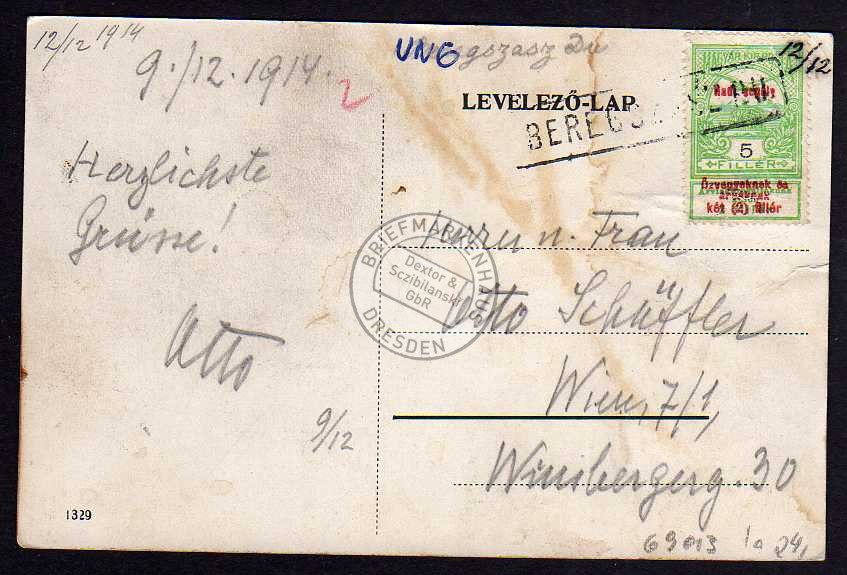 12/12 1914
9./12. 1914.
2
Herzlichste
Grüsse!
Otto
9/12
1329
UNG
gszasz Du
LEVELEZŐ-LAP
BEREGSZ
12/12
MAGYAR KIR. POSTA
Hadi segély
5
FILLÉR
Özvegyeknek és
árváknak
két (2) fillér
Herrn u. Frau
Otto Schäffler
Wien, 7/1,
Wimbergerg. 30
69013 Ia 24,
BRIEFMARKENHAUS
Dextor &
Sczibilanski
GbR
DRESDEN